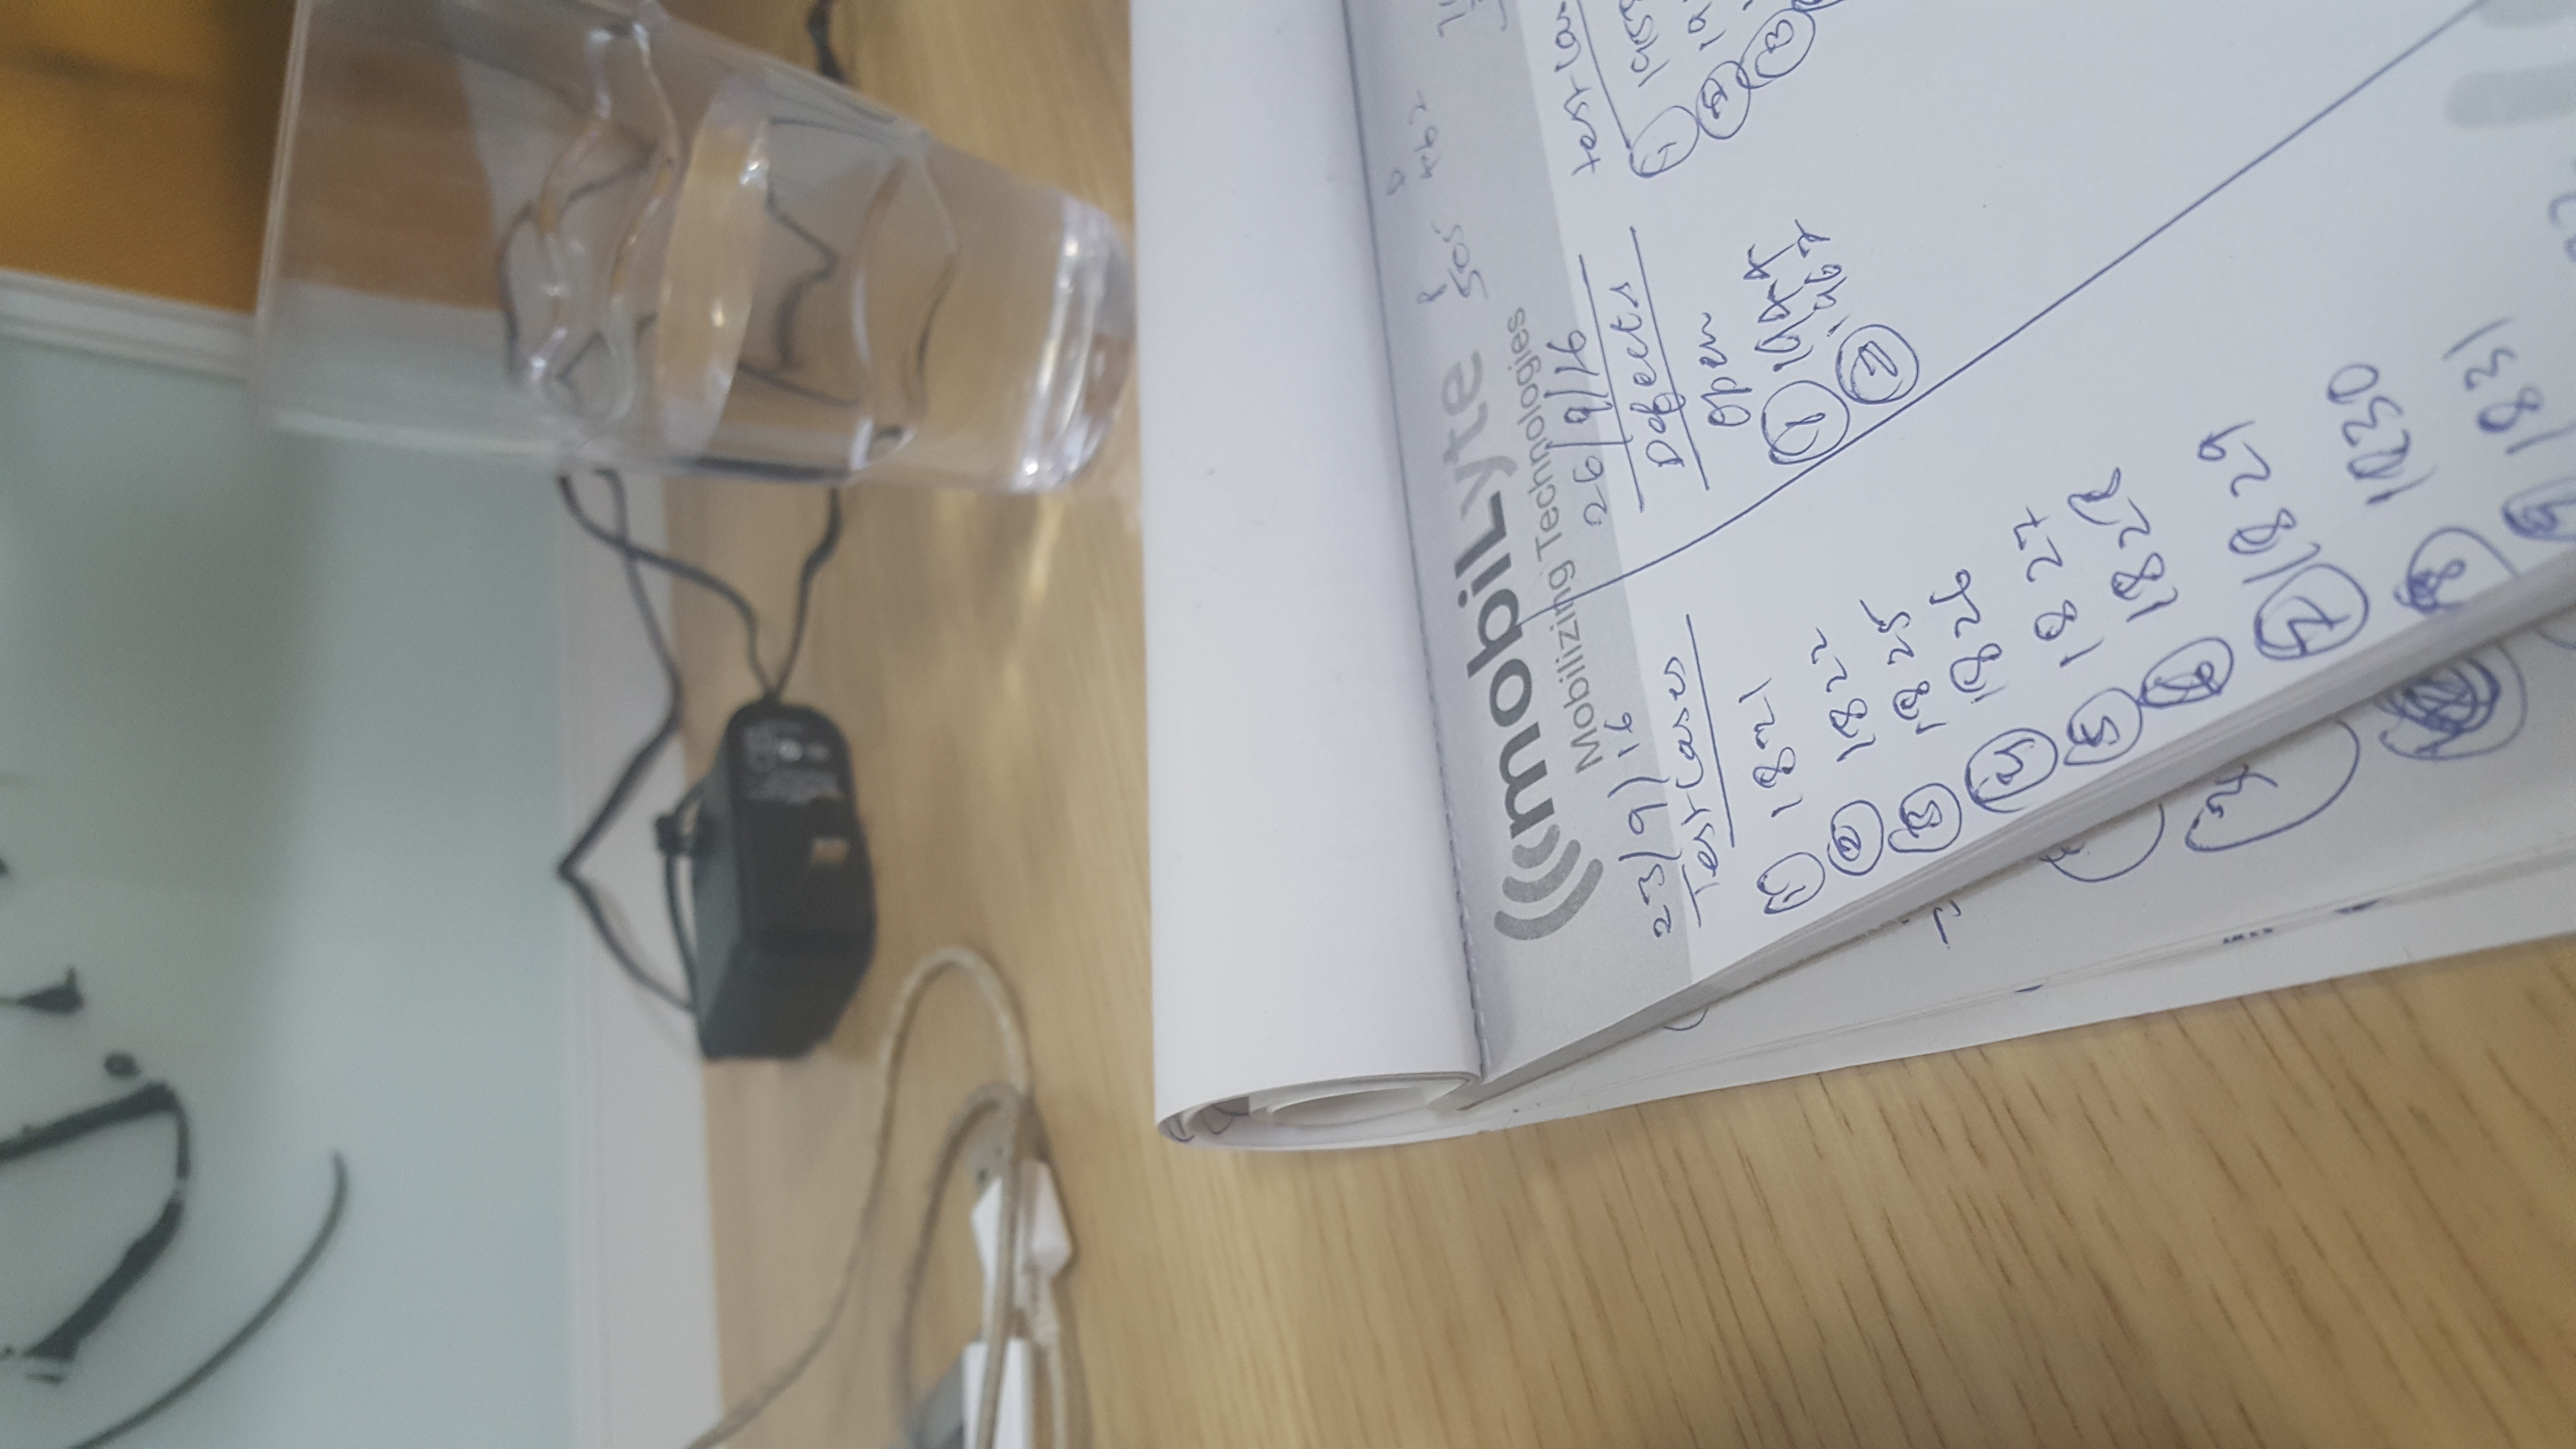 mobiLyte
Mobilizing Technologies
505
23/9/16
Testcases
① 1821
② 1822
③ 1825
④ 1826
⑤ 1827
⑥ 1828
⑦ 1829
⑧ 1830
⑨ 1831
26/9/16
Defects
Open
① 1944
② 1967
①
②
③